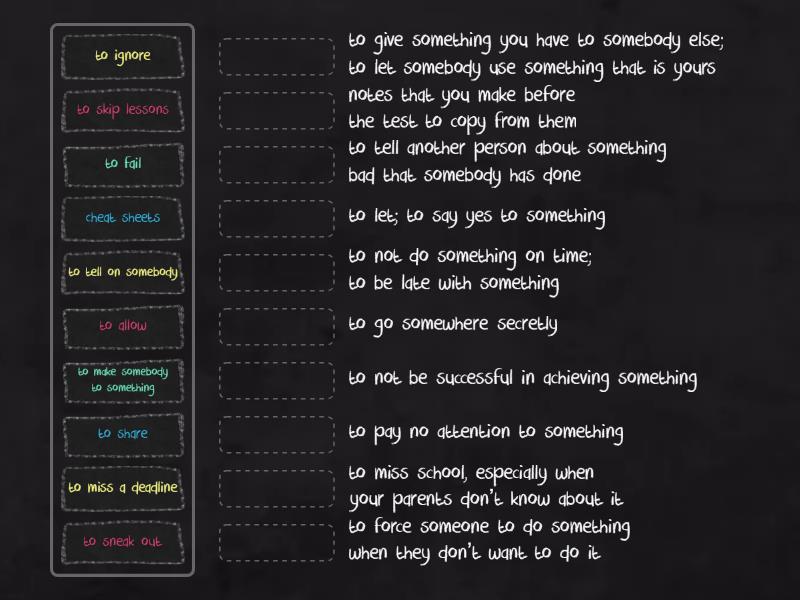 to ignore
to skip lessons
to fail
cheat sheets
to tell on somebody
to allow
to make somebody
to something
to share
to miss a deadline
to sneak out
to give something you have to somebody else;
to let somebody use something that is yours
notes that you make before
the test to copy from them
to tell another person about something
bad that somebody has done
to let; to say yes to something
to not do something on time;
to be late with something
to go somewhere secretly
to not be successful in achieving something
to pay no attention to something
to miss school, especially when
your parents don't know about it
to force someone to do something
when they don't want to do it